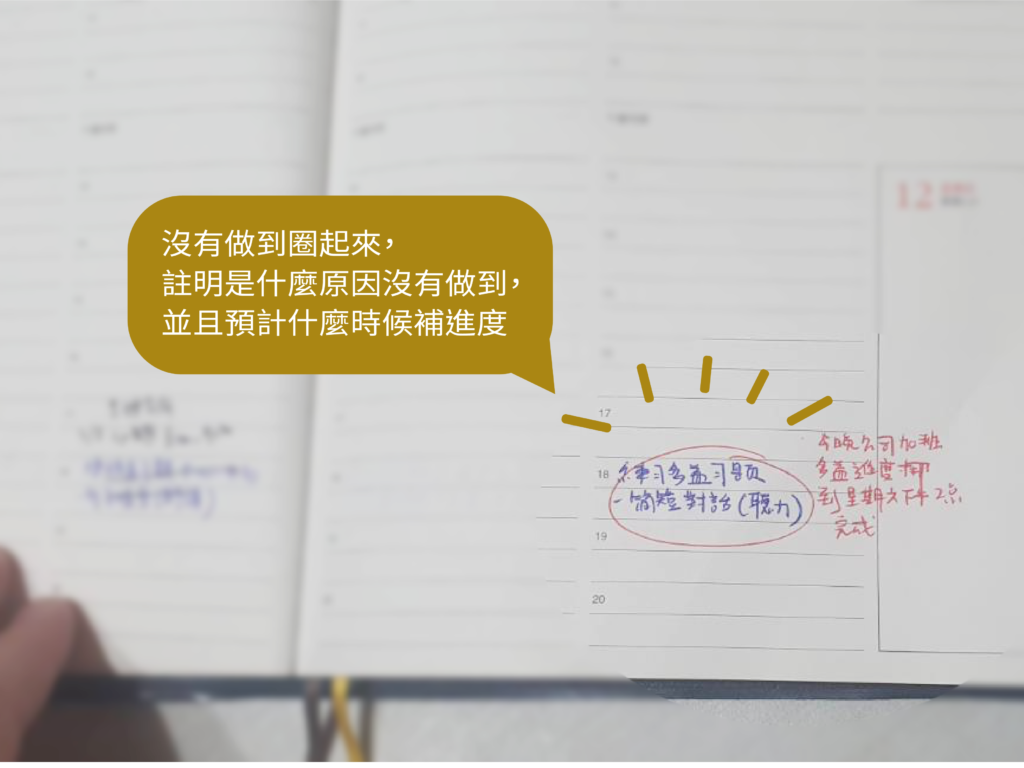 沒有做到圈起來，
註明是什麼原因沒有做到，
並且預計什麼時候補進度
12
17
18
練習多益習題
-簡短對話(聽力)
今晚公司加班
多益進度挪
到星期六下午2點
完成
19
20